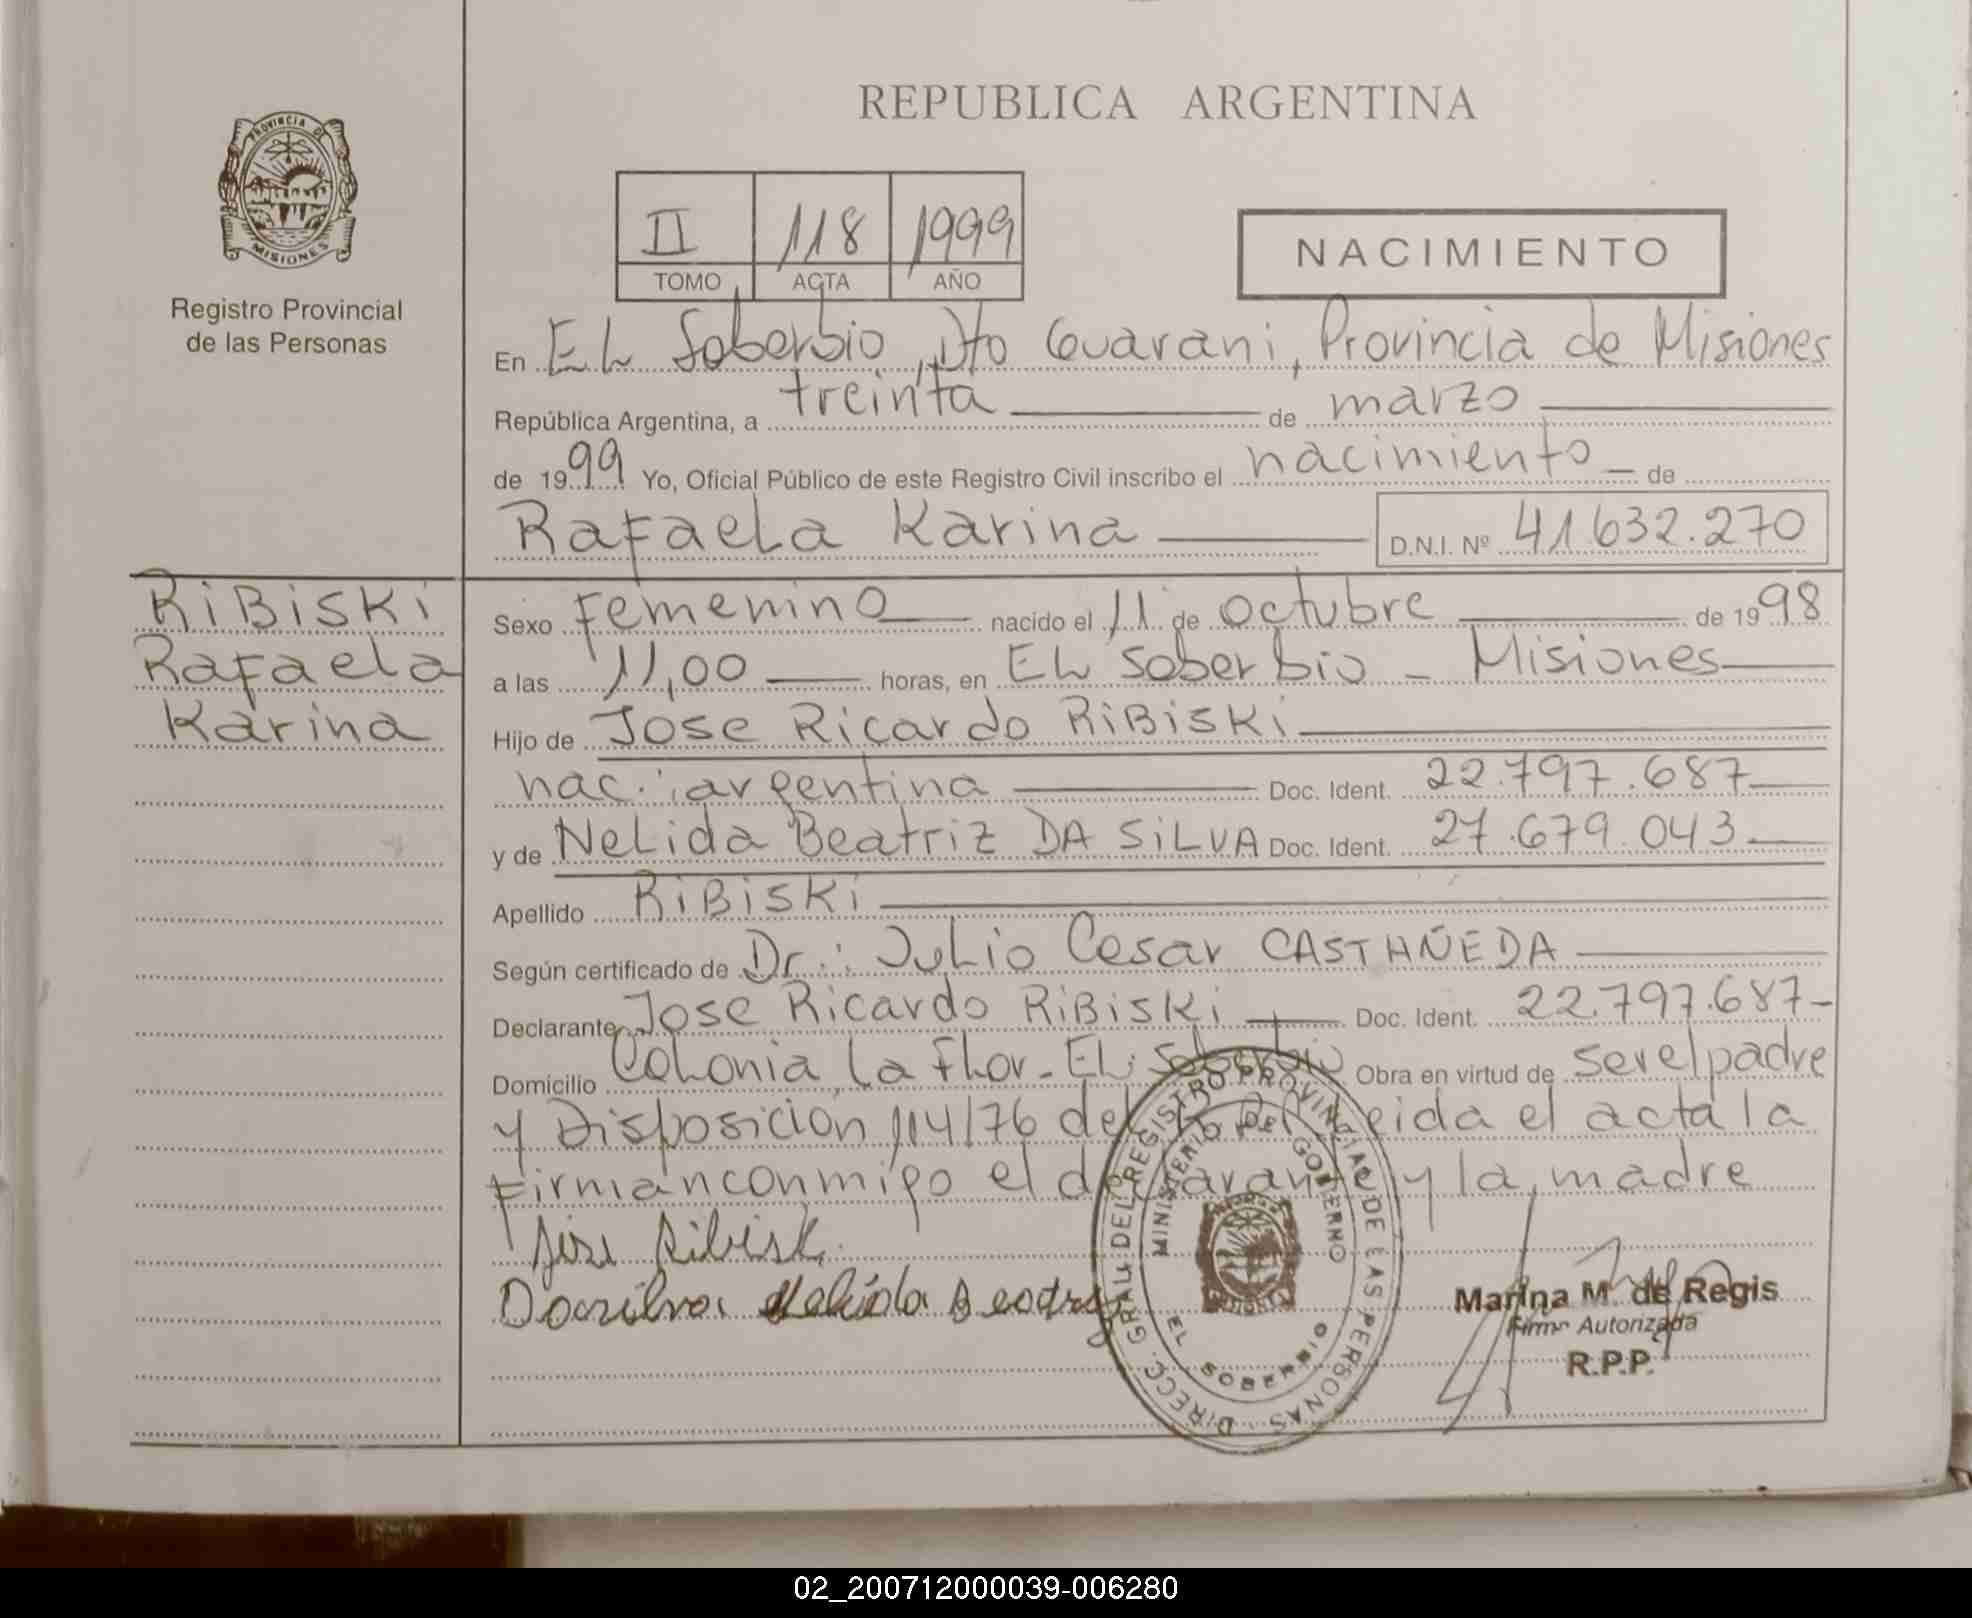 REPUBLICA ARGENTINA
PROVINCIA DE
MISIONES
Registro Provincial
de las Personas
II 118 1999
TOMO ACTA AÑO
NACIMIENTO
En EL Soberbio, Dto Guarani, Provincia de Misiones
República Argentina, a treinta de marzo
de 1999 Yo, Oficial Público de este Registro Civil inscribo el nacimiento de
Rafaela Karina D.N.I. Nº 41632.270
RiBiSKi
Rafaela
Karina
Sexo Femenino nacido el 11 de octubre de 1998
a las 11,00 horas, en EL Soberbio - Misiones
Hijo de Jose Ricardo RiBiSKi
nac.: argentina Doc. Ident. 22.797.687
y de NeLida Beatriz DA SiLVA Doc. Ident. 27.679.043
Apellido RiBiSKi
Según certificado de Dr.: Julio Cesar CASTAÑEDA
Declarante Jose Ricardo RiBiSKi Doc. Ident. 22.797.687-
Domicilio Colonia La Flor - EL Soberbio Obra en virtud de ser el padre
y Disposicion 114/76 del leida el acta la
Firman conmigo el declarante y la madre
Jose Ribiski
Dasilva Nelida Beatriz
DIRECC. GRAL. DEL REGISTRO PROVINCIAL DE LAS PERSONAS
MINISTERIO DE GOBIERNO
EL SOBERBIO
Marina M. de Regis
Firma Autorizada
R.P.P.
02_200712000039-006280